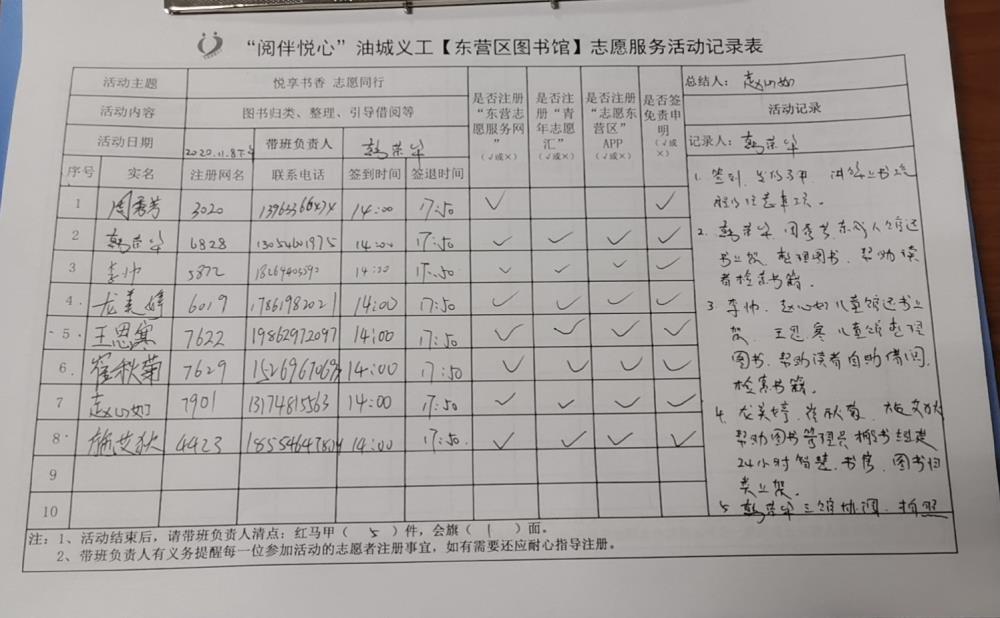 “阅伴悦心”油城义工【东营区图书馆】志愿服务活动记录表
活动主题 悦享书香 志愿同行 是否注册“东营志愿服务网”（√或×） 是否注册“青年志愿汇”（√或×） 是否注册“志愿东营区”APP（√或×） 是否签免责申明（√或×） 总结人：赵心如
活动内容 图书归类、整理、引导借阅等 活动记录
活动日期 2020.11.8下午 带班负责人 韩荣华 记录人：韩荣华
序号 实名 注册网名 联系电话 签到时间 签退时间
1 周秀芳 3020 14:00 17:50 √ √
2 韩荣华 6828 13054601975 14:00 17:50 √ √ √ √
3 李帅 5872 14:00 17:50 √ √ √ √
4. 龙美婷 6019 17861982021 14:00 17:50 √ √ √ √
5. 王思寒 7622 19862972097 14:00 17:50 √ √ √ √
6. 崔秋菊 7629 14:00 17:50 √ √ √ √
7 赵心如 7901 13174815563 14:00 17:50 √ √ √ √
8. 施艾狄 4423 14:00 17:50. √ √ √ √
9
10
1. 签到、发放马甲、讲解上书流
程及注意事项。
2. 韩荣华、周秀芳成人馆还
书上架、整理图书、帮助读
者检索书籍。
3. 李帅、赵心如儿童馆还书上
架、王思寒儿童馆整理
图书、帮助读者自助借阅、
检索书籍。
4. 龙美婷、崔秋菊、施艾狄
帮助图书管理员搬书
24小时智慧书房、图书归
类上架。
5. 韩荣华三馆协调、拍照
注：1、活动结束后，请带班负责人清点：红马甲（ 5 ）件，会旗（ 1 ）面。
2、带班负责人有义务提醒每一位参加活动的志愿者注册事宜，如有需要还应耐心指导注册。